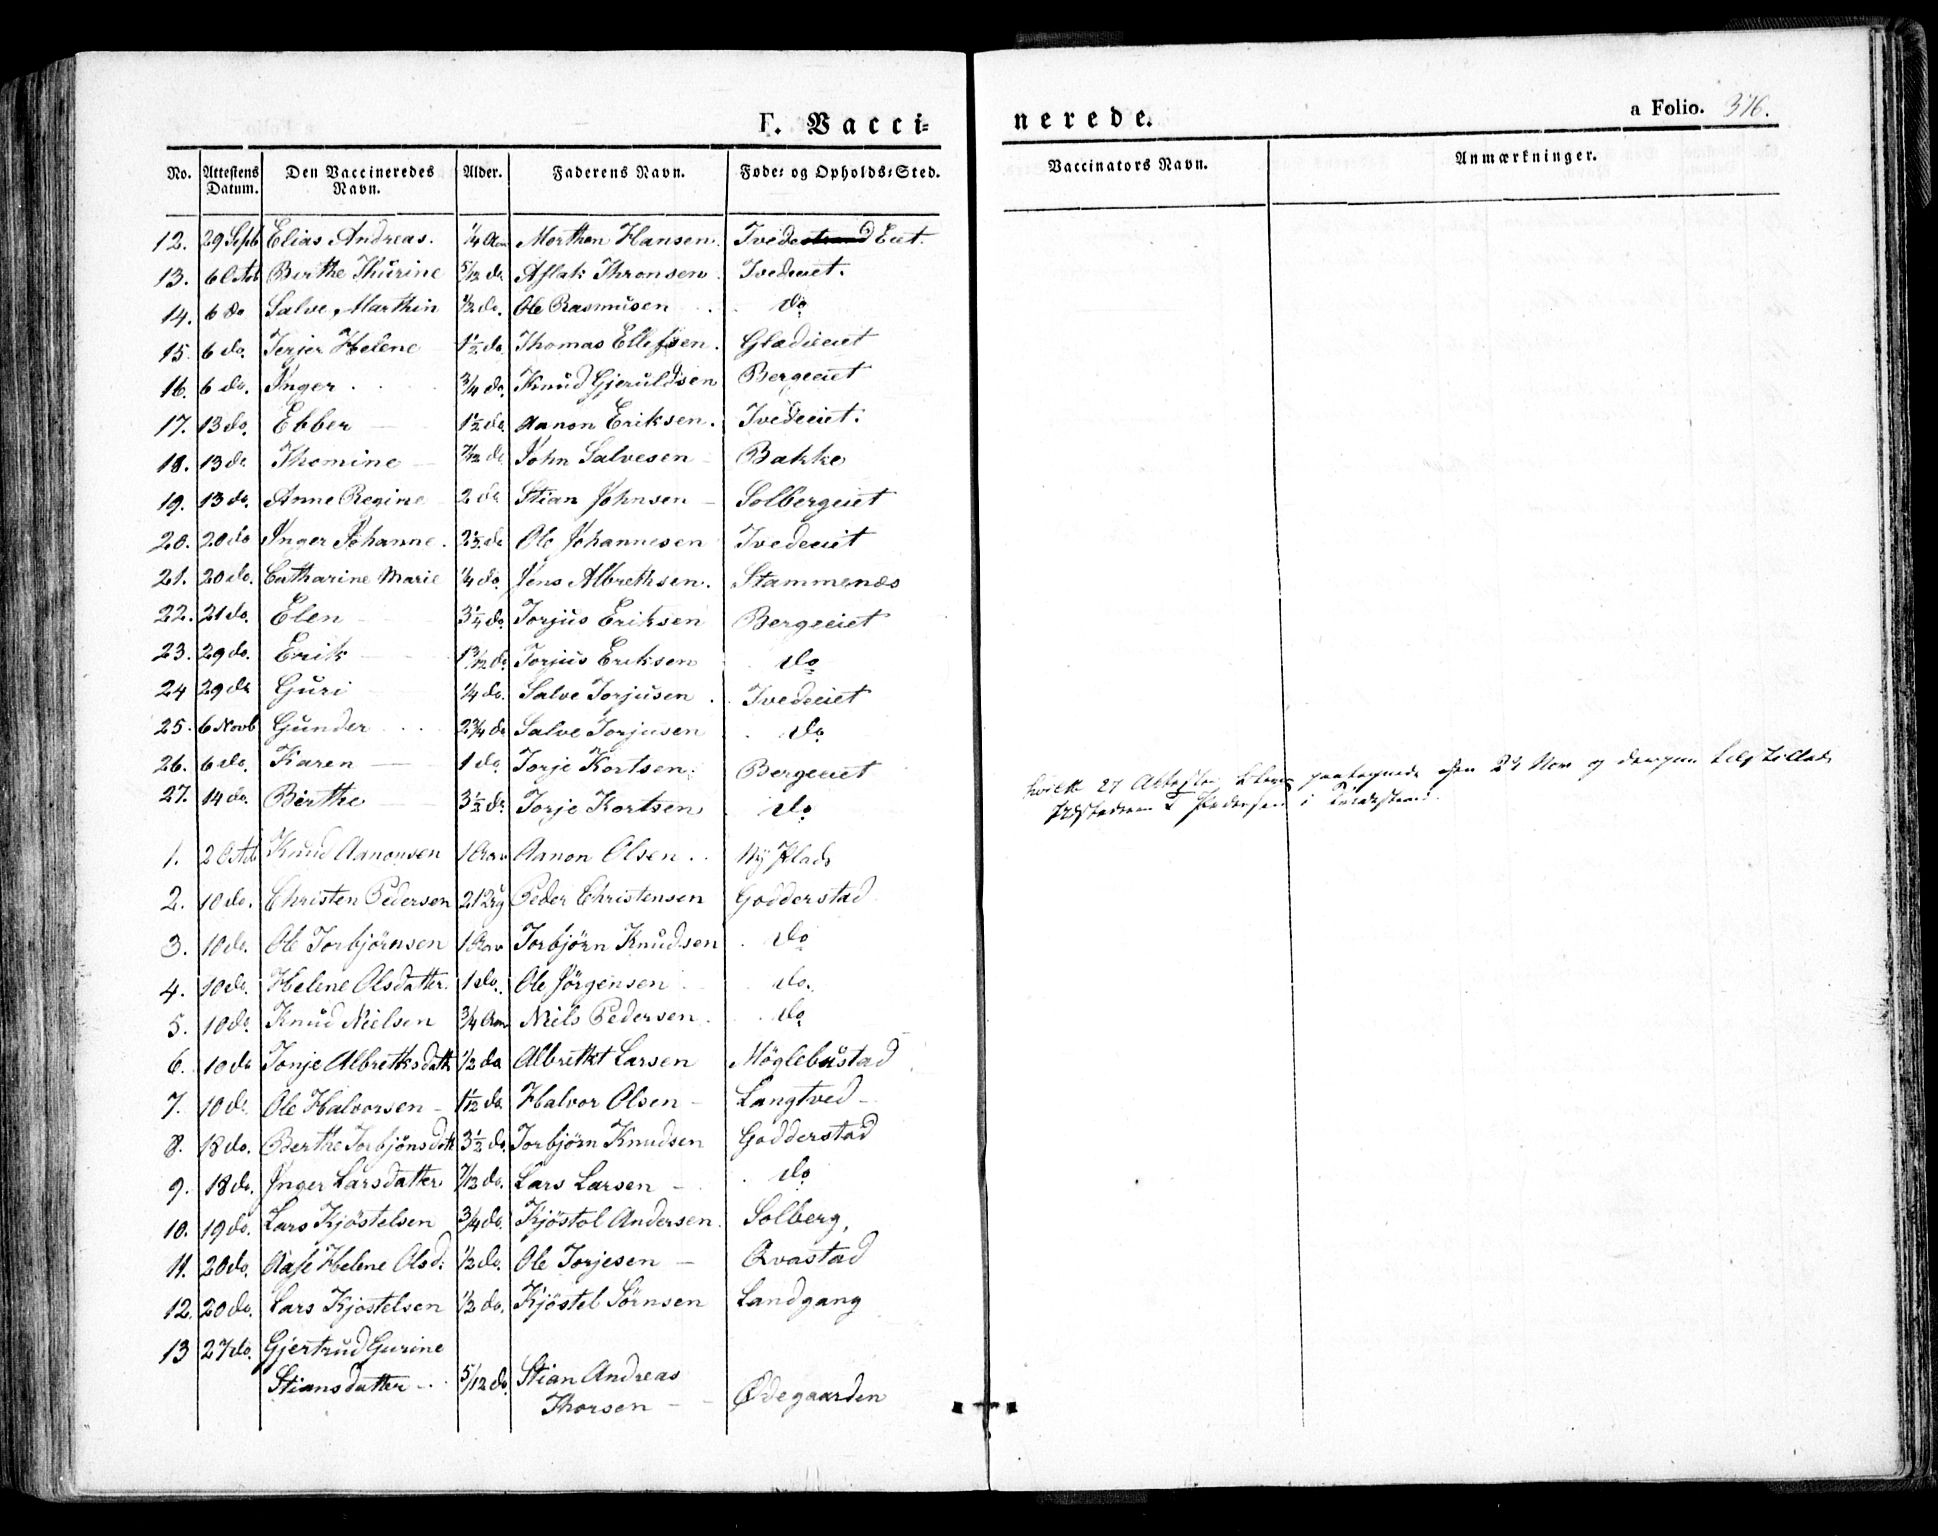 F. Vacci=
nerede.
a Folio. 376.
No. Attestens Datum. Den Vaccineredes Navn. Alder. Faderens Navn. Føde= og Opholds=Sted. Vaccinators Navn. Anmærkninger.
12. 29 Sept Elias Andreas. 1/4 Aar Morthen Hansen. Tvedestrand Eiet.
13. 6 Octob Berthe Thurine 5/12 do Aslak Thronsen. Tvedeeiet.
14. 6 do Salve Marthin 1/2 do. Ole Rasmusen do
15. 6 do. Terjer Helene 1 1/2 do Thomas Ellefsen. Gladeeiet
16. 6 do. Inger. 3/4 do. Knud Gjeruldsen Bergeeiet
17. 13 do. Ebber 1 1/2 do Aanon Eriksen. Tvedeeiet.
18. 13 do Thomine 7/12 do John Salvesen Bakke
19. 13 do. Anne Regine 2 do Stian Johnsen Solbergeiet
20. 20 do Inger Johanne. 2 1/2 do Ole Johannesen Tvedeeiet
21. 20 do. Catharine Marie 1/4 do. Jens Albrethsen. Stammenæs
22. 21 do. Elen 3 1/4 do. Torjus Eriksen Bergeeiet
23. 29 do. Erik 1 3/12 do. Torjus Eriksen do
24 29 do Guri 1/4 do. Salve Torjusen Tvedeeiet
25. 6 Novb Gunder 2 3/4 do Salve Torjusen do
26. 6 do. Karen 1 do. Torje Kortsen. Bergeeiet
27. 14 do. Birthe 3 1/2 do. Torje Kortsen do
hvilke 27 Attester den 24 Nov og
i Tvedestrand.
1. 2 Octob Knud Aanonsen 1 Aar Aanon Olsen.. Ny Plads
2. 10 do. Christen Pedersen 21 Peder Christensen Godderstad
3. 10 do. Ole Torbjörnsen 1 Aar Torbjörn Knudsen do
4. 10 do. Helene Olsdatter. 1 do. Ole Jörgensen do.
5. 10 do Knud Nielsen 3/4 Aar Niels Pedersen. do
6. 10 do Tonje Albrethsdatt 1/2 do Albretht Larsen Möglebustad
7. 10 do. Ole Halvorsen 1 1/12 do Halvor Olsen Langtved
8. 18 do. Berthe Torbjönsdatt 3 1/2 do. Torbjörn Knudsen Godderstad
9. 18 do. Inger Larsdatter 7/12 do. Lars Larsen do
10. 19 do. Lars Kjöstelsen 3/4 do. Kjöstol Andersen. Solberg,
11. 20 do. Aase Helene Olsd: 1/2 do. Ole Torjesen Qvastad
12. 20 do. Lars Kjostelsen 1/2 do. Kjöstel Sörnsen Landgang
13 27 do. Gjertrud Gurine
Stiansdatter 5/12 do. Stian Andreas
Thorsen Ødegaarden